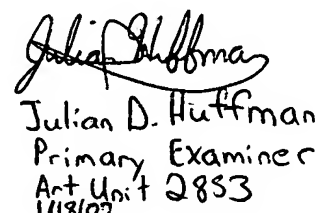 Julian D. Huffman
Julian D. Huffman
Primary Examiner
Art Unit 2853
1/18/07